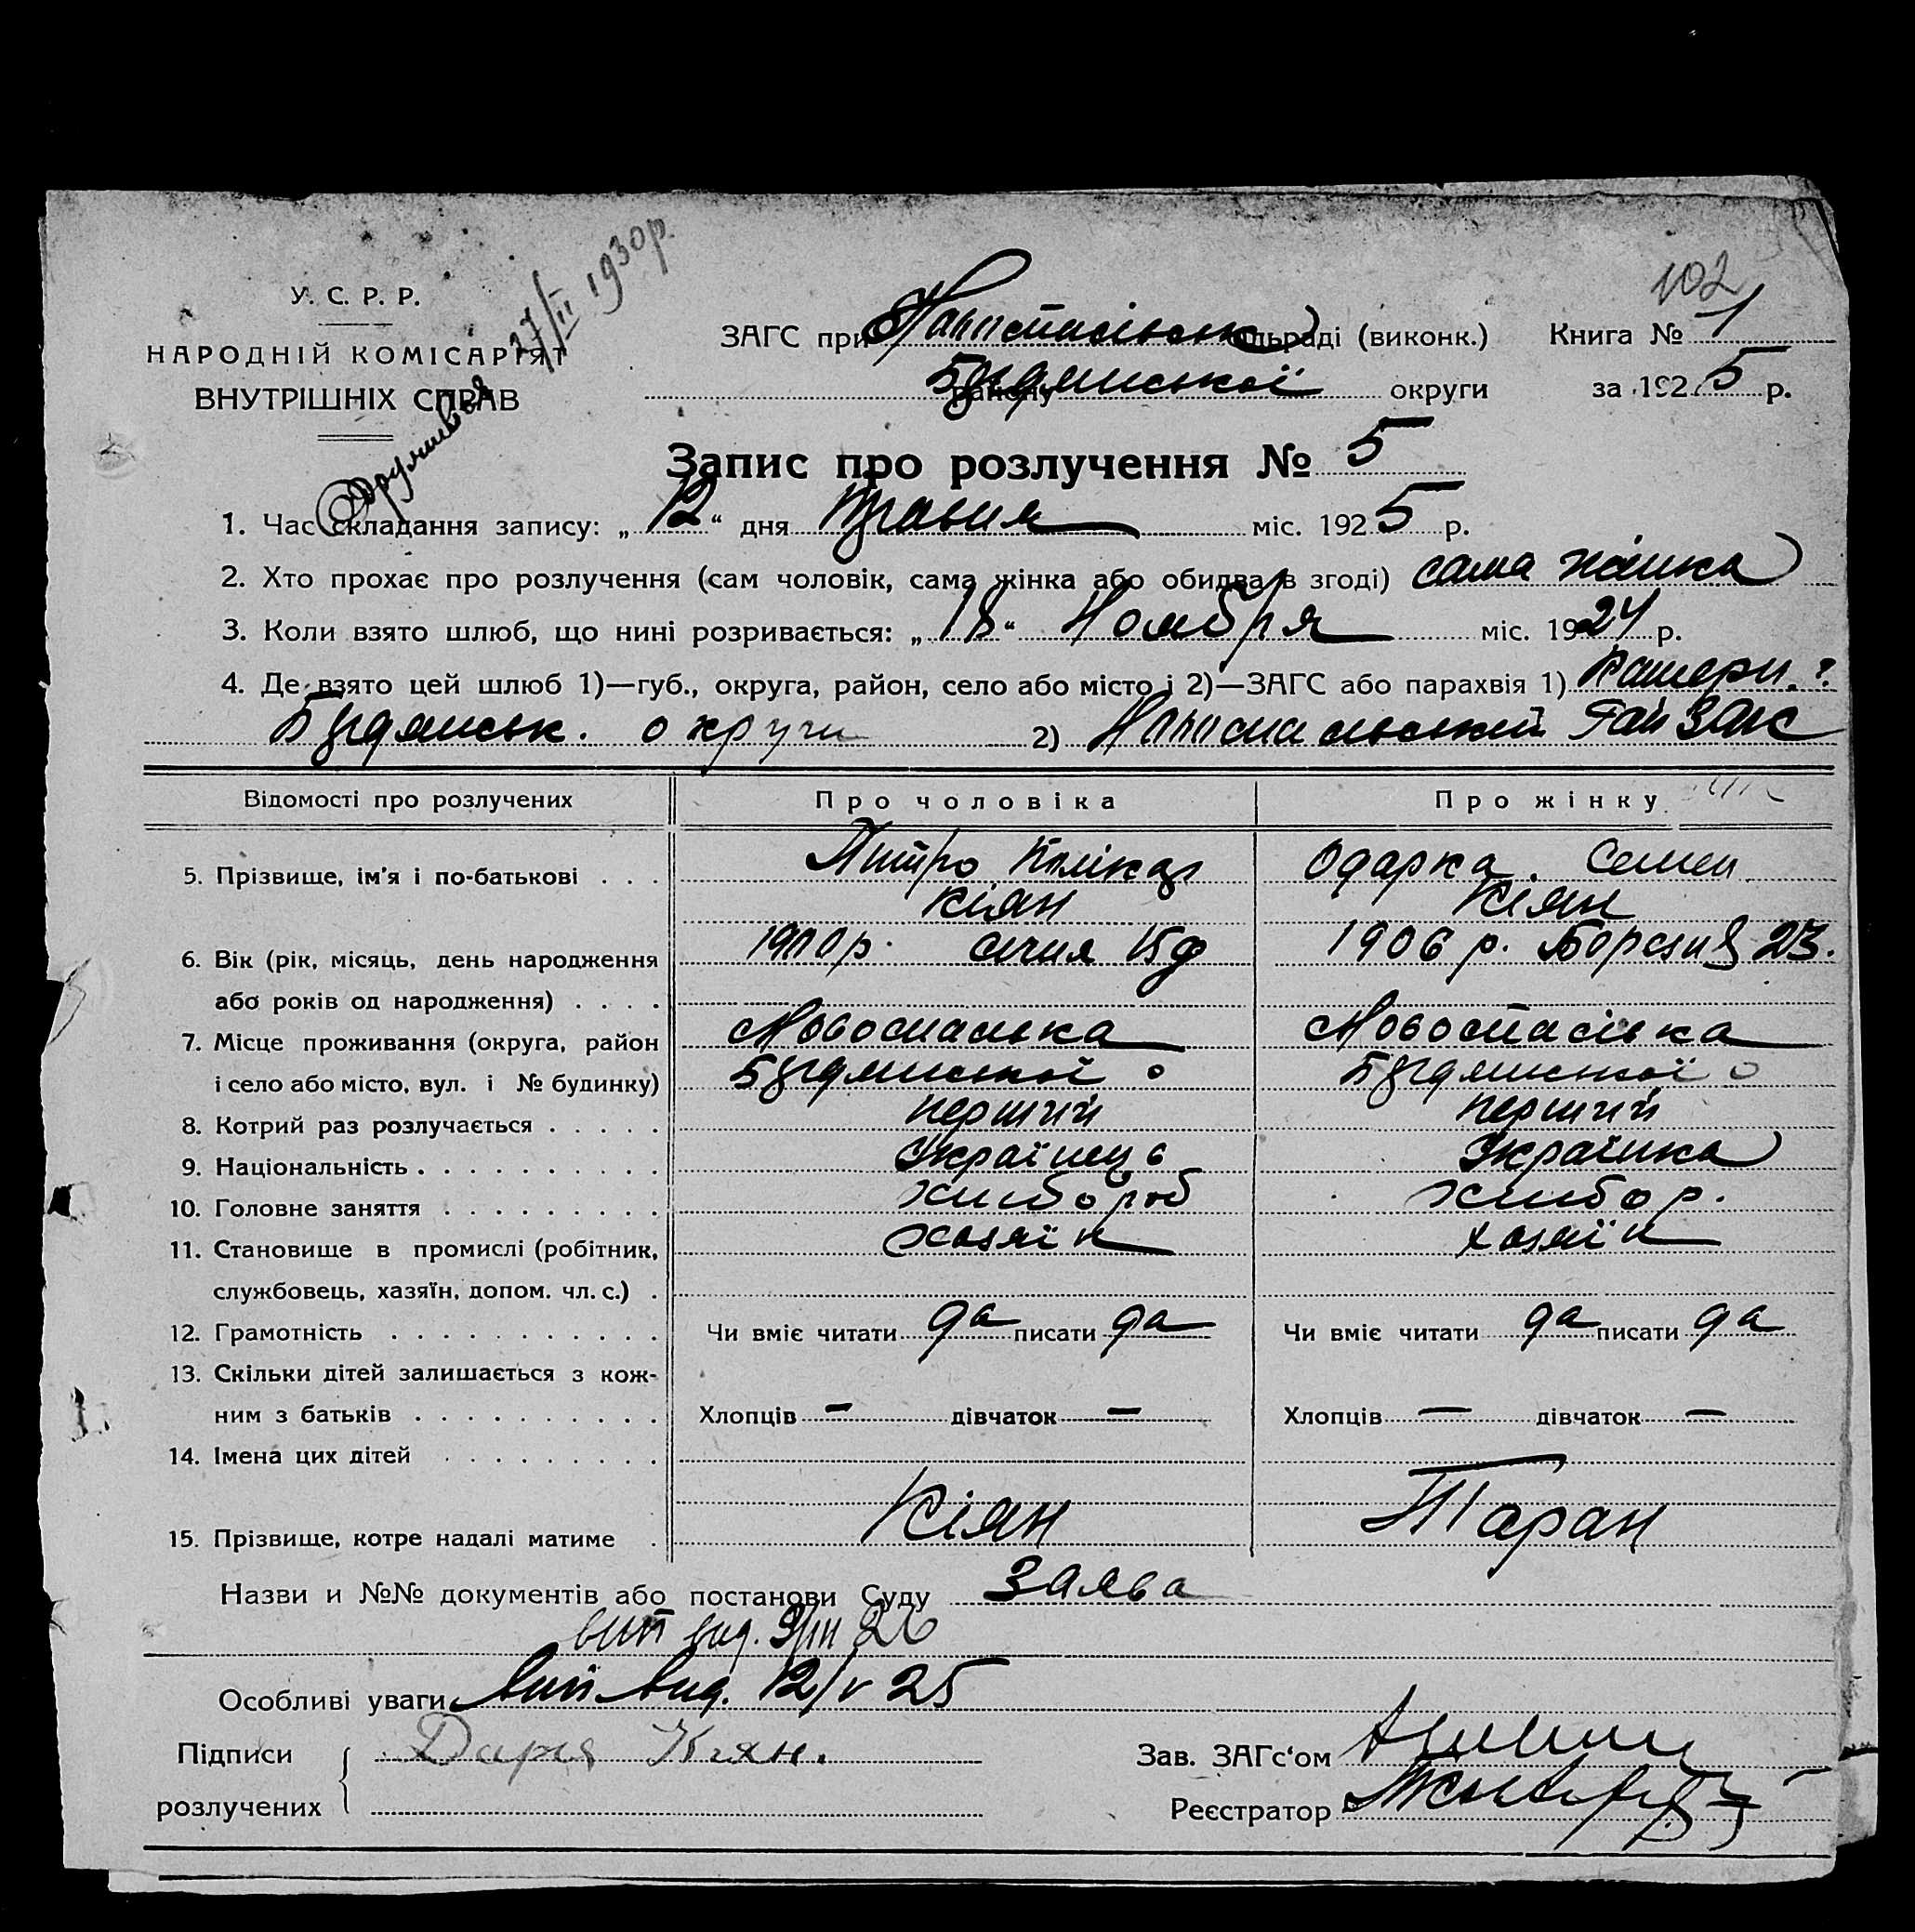 102
27/II 1930р.
Одружився
У. С. Р. Р.
НАРОДНІЙ КОМІСАРІЯТ
ВНУТРІШНІХ СПРАВ
ЗАГС при сільраді (виконк.) Книга № 1
району округи за 1925 р.
Запис про розлучення № 5
1. Час складання запису: „12“ дня травня міс. 1925 р.
2. Хто прохає про розлучення (сам чоловік, сама жінка або обидва в згоді) сама жінка
3. Коли взято шлюб, що нині розривається: „18“ Ноября міс. 1924 р.
4. Де взято цей шлюб 1)—губ., округа, район, село або місто і 2)—ЗАГС або парахвія 1) Катери. г.
округи 2) Рай ЗАГС
Відомості про розлучених Про чоловіка Про жінку
5. Прізвище, ім'я і по-батькові . . . Одарка. Семен.
Кіян Кіян
6. Вік (рік, місяць, день народження січня 15 д 1906 р. Березня 23.
або років од народження) . . . .
7. Місце проживання (округа, район Новоспаська Новоспасівка
і село або місто, вул. і № будинку)
8. Котрий раз розлучається . . . . . перший перший
9. Національність . . . . . . . . . . Українець Українка
10. Головне заняття . . . . . . . . . хлибороб хлибор.
11. Становище в промислі (робітник, хозяїн хозяїн
службовець, хазяїн, допом. чл. с.) .
12. Грамотність . . . . . . . . . . . Чи вміє читати да писати да Чи вміє читати да писати да
13. Скільки дітей залишається з кож-
ним з батьків . . . . . . . . . . Хлопців — дівчаток — Хлопців — дівчаток —
14. Імена цих дітей . . . . . . . . .
15. Прізвище, котре надалі матиме . Кіян Таран
Назви и №№ документів або постанови Суду Заява
вип вид. 9/III 26
Особливі уваги вип вид. 12/V 25
Підписи Дарія Киян. Зав. ЗАГс'ом
розлучених Реєстратор